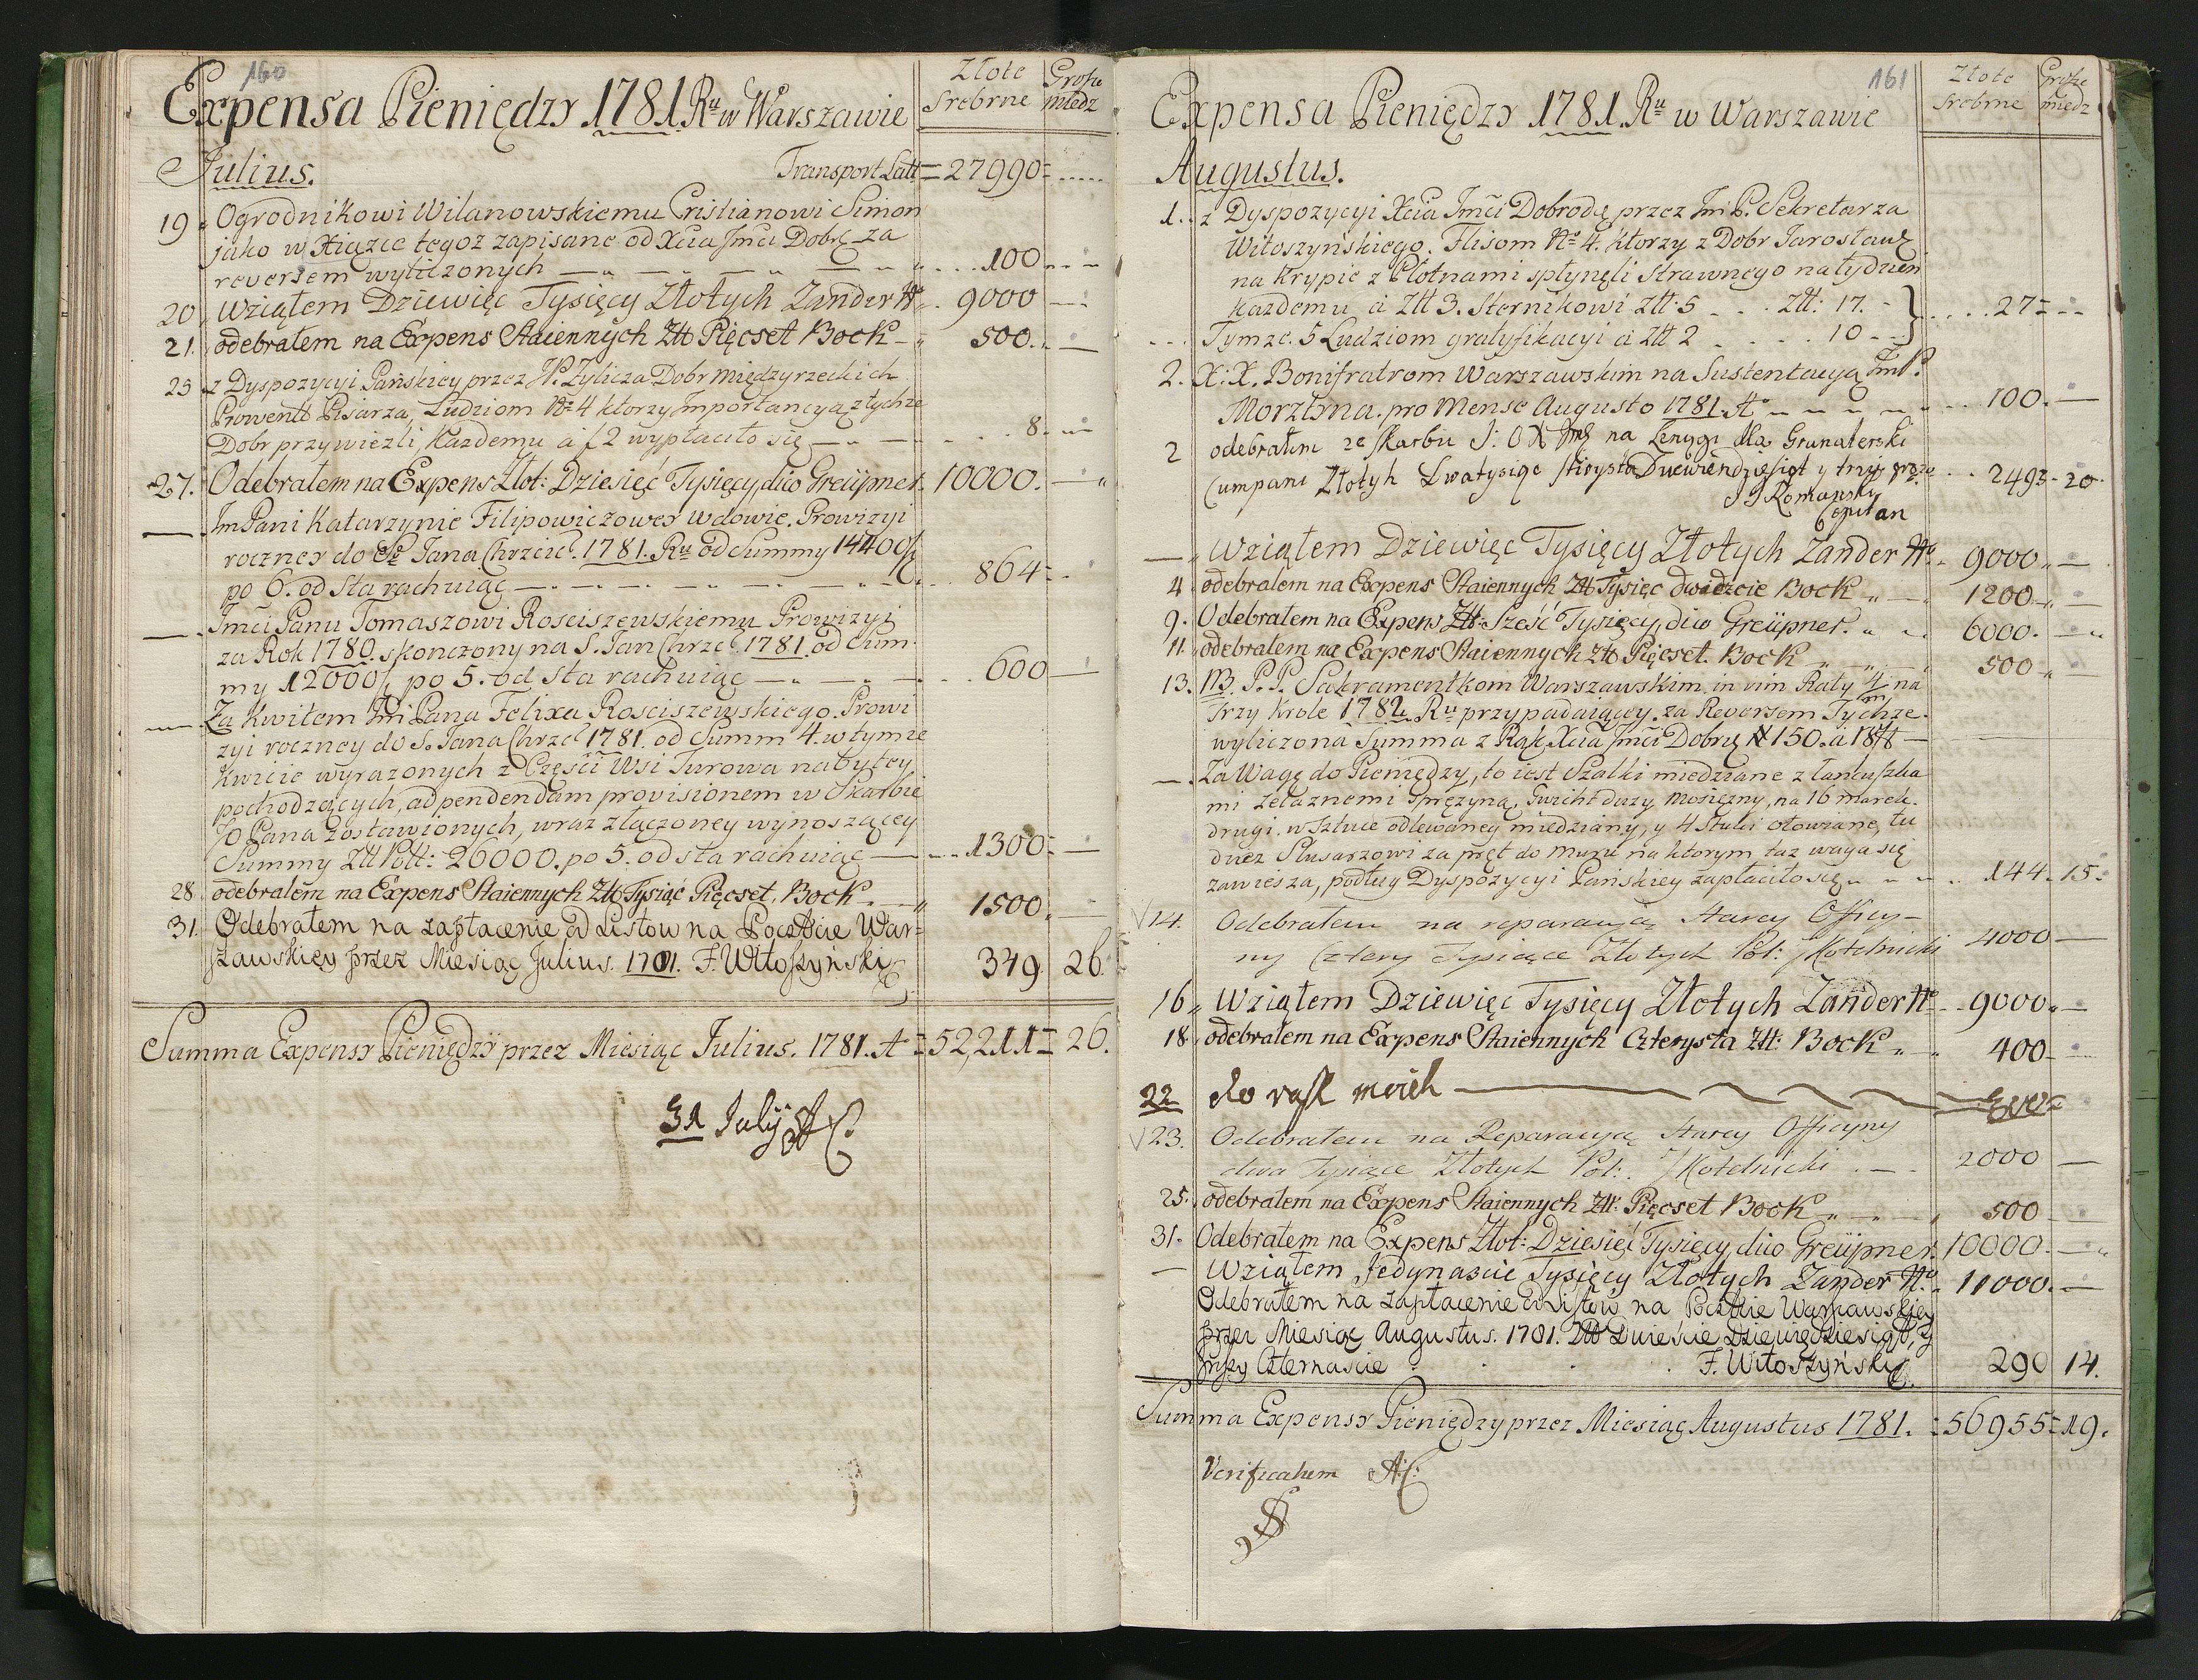 160
Expensa Pieniędzy 1781 Ru w Warszawie
Złote Srebrne
Grosze miedz
Julius.
Transport Latt = 27990 = .....
19 Ogrodnikowi Wilanowskiemu Cristianowi Simon
jako w Xiązce tegoz zapisane od Xcia Jmci Dobrę za
reversem wyliczonych 100
20 Wziąłem Dziewięc Tysięcy Złotych Zander 9000
21. odebrałem na Expens Staiennych Złt Pięcset Bock 500
23 z Dyspozycyi Pańskiey przez JP. Zylicza Dobr międzyrzeckich
Prowent Pisarza, Ludziom No 4 ktorzy Importancyą z tychze
Dobr przywiezli, Kazdemu a f 2 wypłaciło się 8.
27. Odebrałem na Expens Złot: Dziesięć Tysięcy, dico Greüpner 10000.
Jm Pani Katarzynie Filipowiczowey wdowie. Prowizyi
roczney do So Jana Chrzcic. 1781. Ru od Summy 14400
po 6. od sta rachuiąc 864
Jmci Panu Tomaszowi Rosciszewskiemu Prowizyi
za Rok 1780. skonczony na S. Jan Chrzc. 1781. od Sum-
my 12000 po 5. od sta rachuiąc 600
Za Kwitem Jmci Pana Felixa Rosciszewskiego. Prowi
zyi roczney do S. Jana Chrzc 1781. od Summ 4. w tymze
kwicie wyrazonych z Części Wsi Turowa nabytey
pochodzących, ad pendendam provisionem w Skarbie
JO Pana zostawionych, wraz złączoney wynoszącey
Summy Złt Poll: 26000. po 5. od sta rachuiąc 1300
28. odebrałem na Expens Staiennych Złt Tysiąc Pięcset, Bock 1500
31. Odebrałem na zapłacenie od Listow na Poczcie War=
szawskiey przez Miesiąc Julius. 1781. F. Witoszyński 349 26.
Summa Expensy Pieniędzy przez Miesiąc Julius. 1781. A = 52,211 = 26.
31 Julij
161
Expensa Pieniędzy 1781. Ru w Warszawie
Złote srebrne
Grosze miedz
Augustus.
1. z Dyspozycyi Xcia Jmci Dobrodz przez Jm P. Sekretarza
Witoszyńskiego. Flisom No 4. ktorzy z Dobr Jarosław
na Krypie z Płotnami spłynęli strawnego na tydzień
Kazdemu a Złt 3. Sternikowi Złt: 5 . . . Złt: 17.
Tymze. 5 Ludziom gratyfikacyi a Złt 2 . . . . 10
27
2. X: X. Bonifratrom Warszawskim na Sustentacyą Jm P.
Morztyna. pro Mense Augusto 1781. A 100.
2 odebrałem ze skarbu J: O X na Lenungi dla Granaterski
Cumpani Złotyh Dwatysiąc sterysta Diewiendziesiąt y trzy grosze 2493 - 20
Romansky
Capitan
Wziąłem Dziewięc Tysięcy Złotych Zander 9000
4 odebrałem na Expens Staiennych Złt Tysiec dwadzcie Bock 1200
9. Odebrałem na Expens Złt: Sześć Tysięcy, dico Greüpner. 6000.
11. odebrałem na Expens Staiennych Złt Pięcset. Bock 500
13. NB. P. P. Sakramentkom Warszawskim in vim Raty 4 na
Trzy Krole 1782. Ru przypadaiącey. za Reversem Tychze.
wyliczona Summa z Rąk Xcia Jmci Dobrę # 150. a 18
Za Wagę do Pieniędzy, to iest Szalki miedziane z łancuszka
mi zelaznemi Sprężyną, Gwicht duzy mosięzny, na 16 marek.
drugi. w sztuce odlewaney miedziany, y 4 stuki ołowiane, tu
dziez Slusarzowi za pręt do muru na ktorym taz waga się
zawiesza, podług Dyspozycyi Pańskiey zapłaciło się 144. 15.
14. Odebrałem na reparacyią Starey Officy-
ny Cztery Tysiące Złotych Pol: JKotelnicki 4000
16 Wziąłem Dziewięc Tysięcy Złotych Zander 9000
18 odebrałem na Expens Staiennych Czterysta Złt: Bock 400
22 do rąk moich
23. Odebrałem na Reparacyią Starey Officyny
dwa Tysiące Złotych Pol: JKotelnicki 2000
25. odebrałem na Expens Staiennych Złt: Pięcset Bock 500
31. Odebrałem na Expens Złot: Dziesięć Tysięcy, dico Greüpner. 10000.
Wziąłem Jedynascie Tysięcy Złotych Zander 11000.
Odebrałem na zapłacenie od Listow na Poczcie Warszawskiey
przez Miesiąc Augustus. 1781. Złt Dwiescie Dziewięćdziesiąt, gr
Czternascie F. Witoszyński 290 14.
Summa Expensy Pieniędzy przez Miesiąc Augustus 1781. = 56955 = 19.
Verificatum